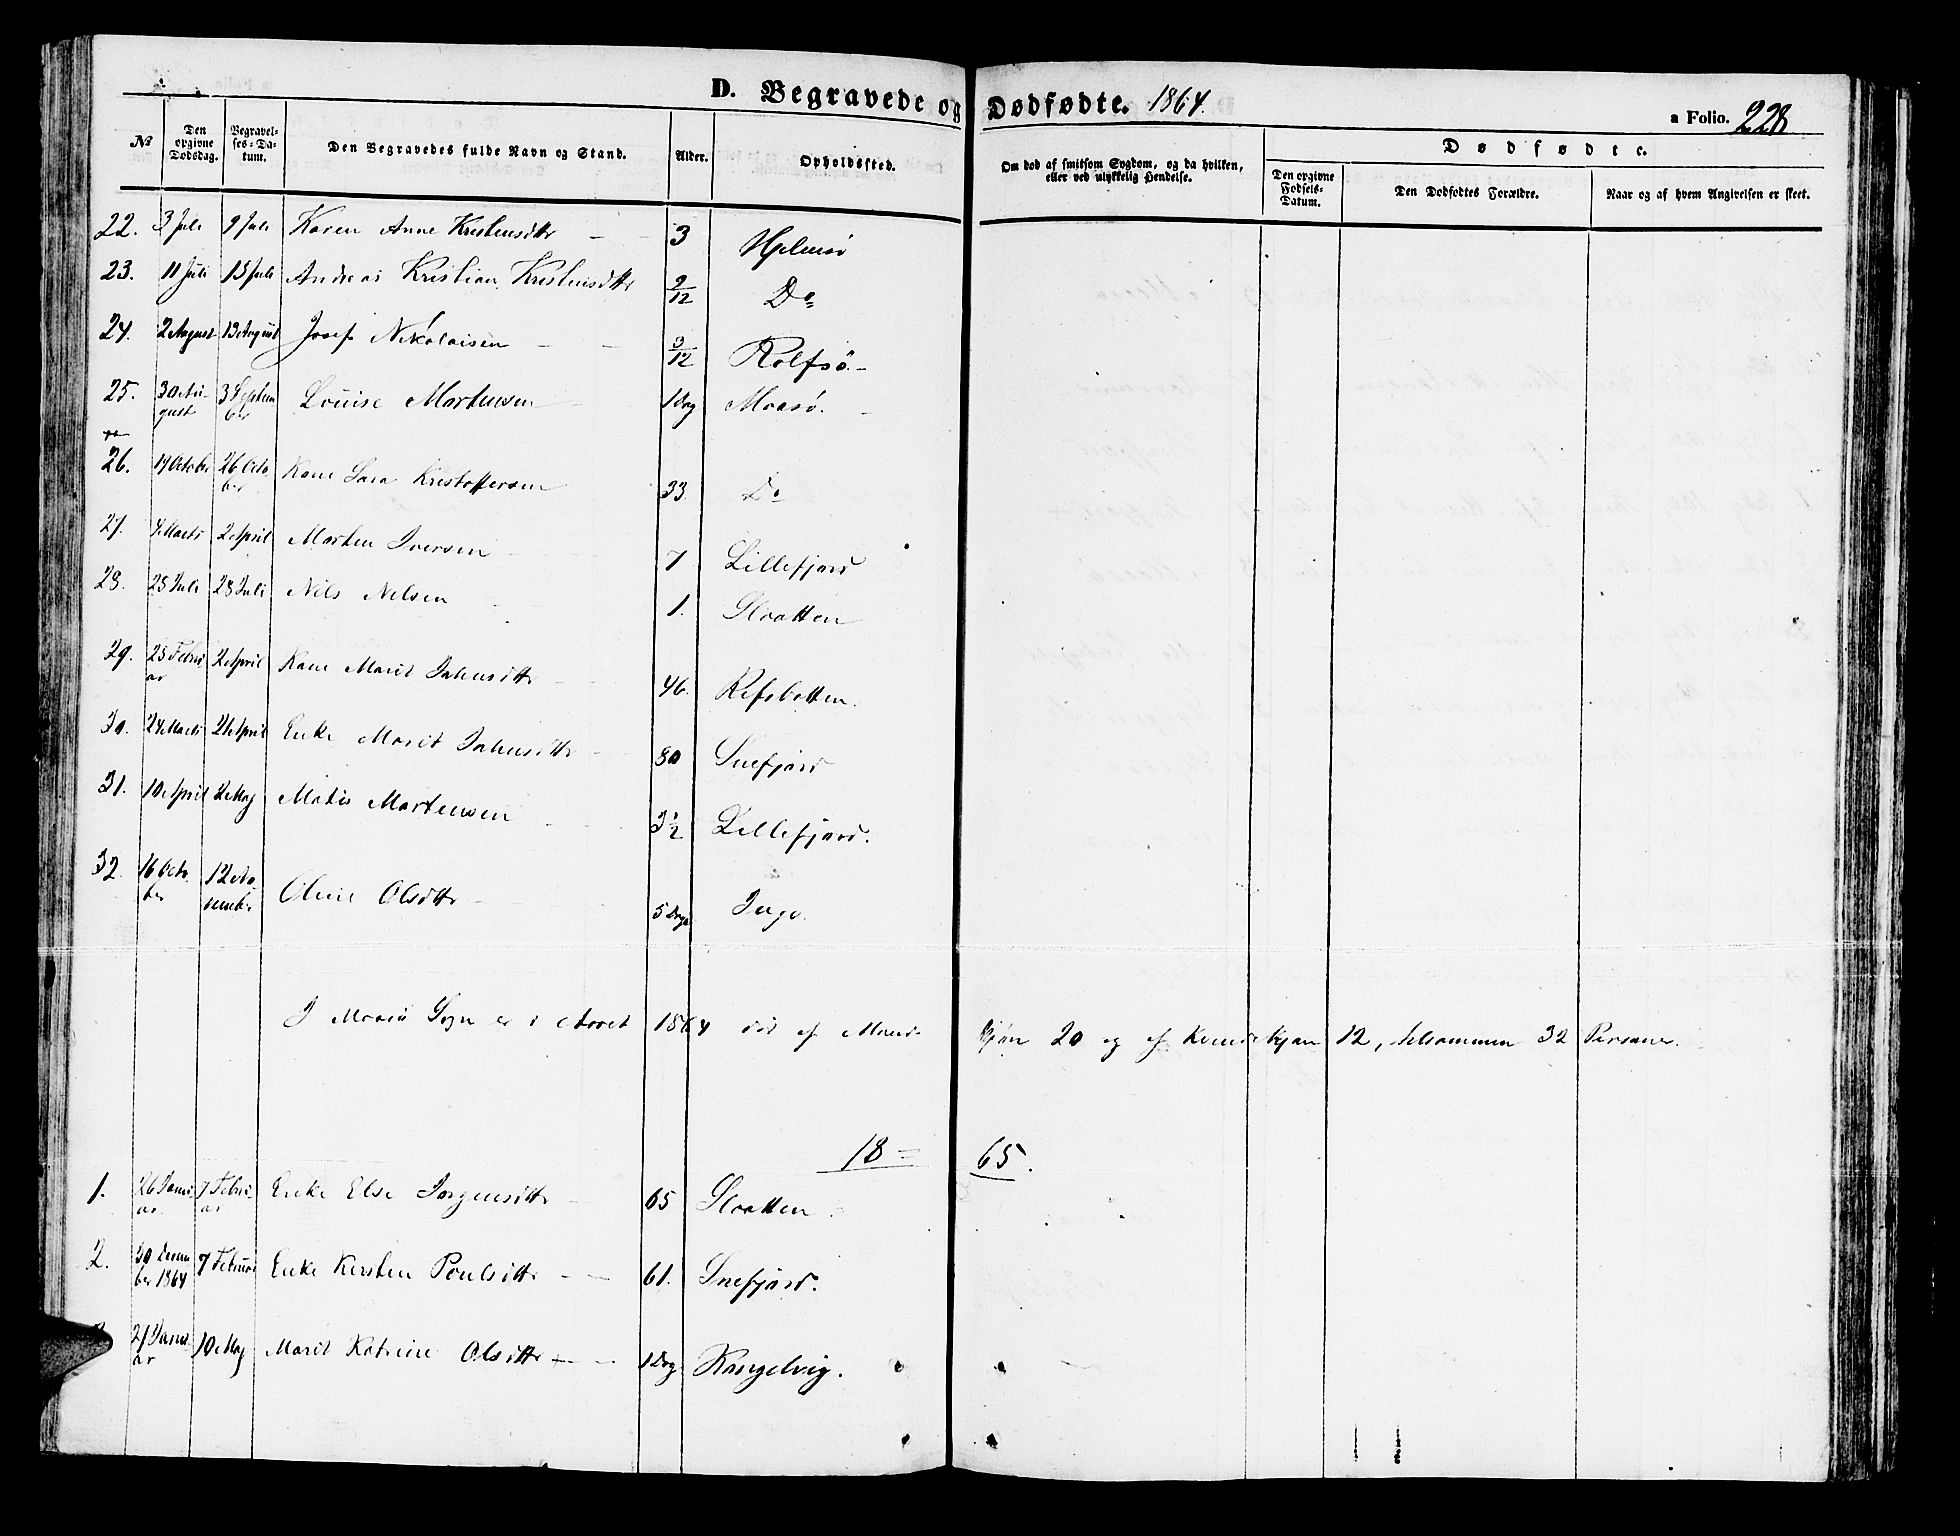 D. Begravede og Dødfødte. 1864. a Folio. 228
№ Den opgivne Dødsdag. Begravelses-Datum. Den Begravedes fulde Navn og Stand. Alder. Opholdssted. Om død af smitsom Sygdom, og da hvilken, eller ved ulykkelig Hendelse. Dødfødte. Den opgivne Fødsels-Datum. Den Dødfødtes Forældre. Naar og af hvem Angivelsen er skeet.
22. 3 Juli 9 Juli Karen Anne Kristensdttr 3 Hjelmsö
23. 11 Juli 15 Juli Andreas Kristian Kristensdttr 9/12 Do
24. 2 August 13 August Josef Nikolaisen 3/12 Rolfsö.
25. 30 August 3 September Louise Martensen 1 Dag Maasö.
26. 19 October 26 October Kane Sara Kristoffersen 33 Do
27. 4 Marts 2 April Marten Iversen 7 Lillefjord
28. 23 Juli 28 Juli Nils Nilsen 1. Slaatten
29. 25 Februar 2 April Kane Marit Johnsdttr 46. Refsbotten.
30. 24 Marts 26 April Enke Marit Johnsdttr 80 Snefjord
31. 10 April 2 Maj Matis Martensen 3 1/2 Lillefjord.
32. 16 October 12 November Oline Olsdttr 5 Dage Ingö.
I Maasö Sogn er i Aaret 1864 död af Mandkjön 20 og af Kvindekjön 12, tilsammen 32 Personer.
18 = 65.
1. 26 Januar 7 Februar Enke Else Jörgensdttr 65 Slaatten.
2. 30 December 1864 7 Februar Enke Kirsten Poulsdttr 61. Snefjord.
21 Januar 10 Maj Marit Katrine Olsdttr 1 Dag